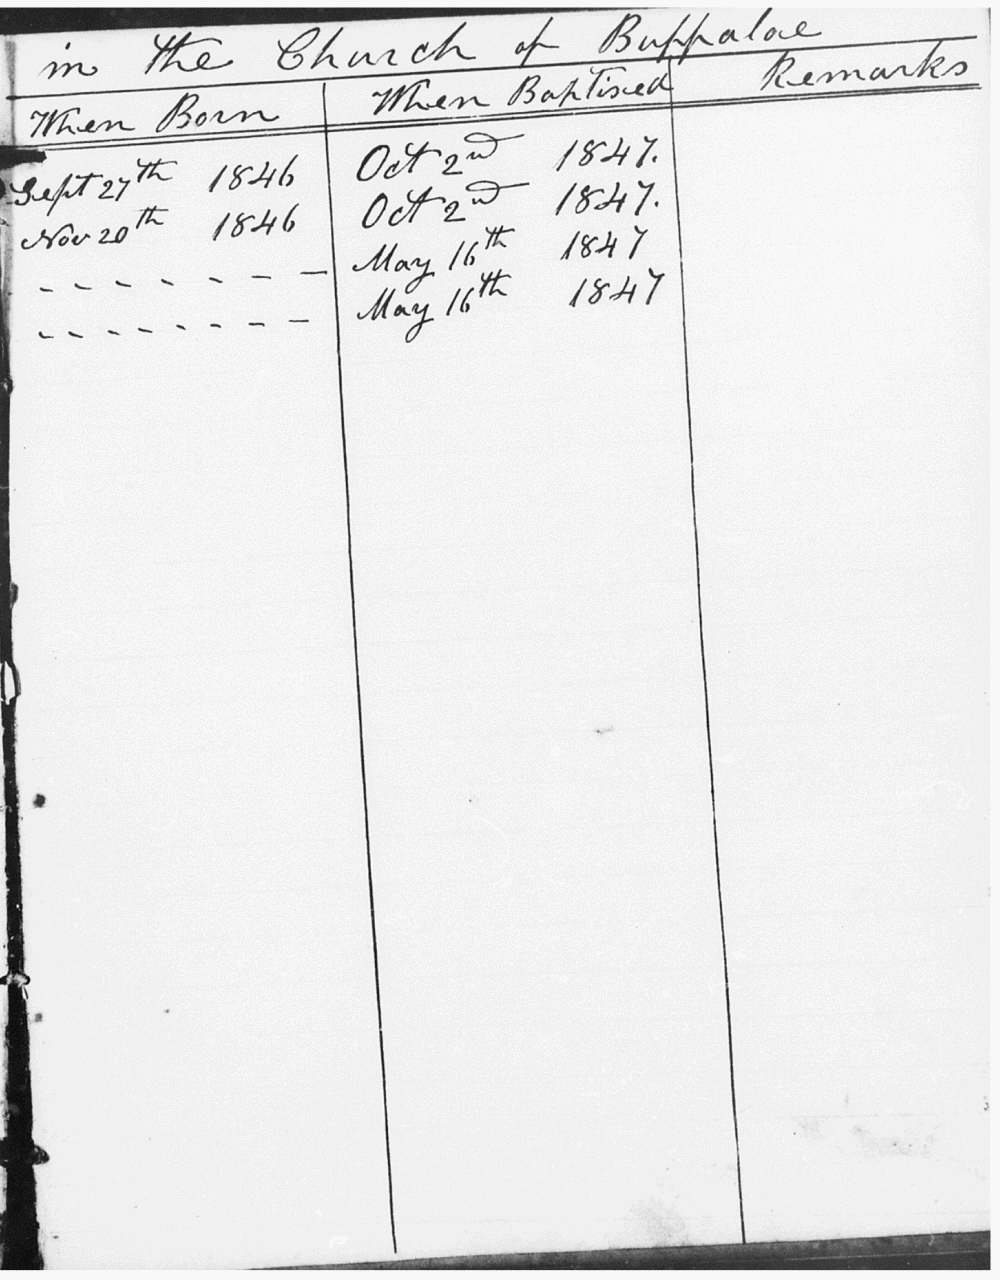 in the Church of Buffaloe
When Born When Baptised Remarks
Sept 27th 1846 Oct 2nd 1847.
Nov 20th 1846 Oct 2nd 1847.
- - - - - - - - May 16th 1847
- - - - - - - - May 16th 1847